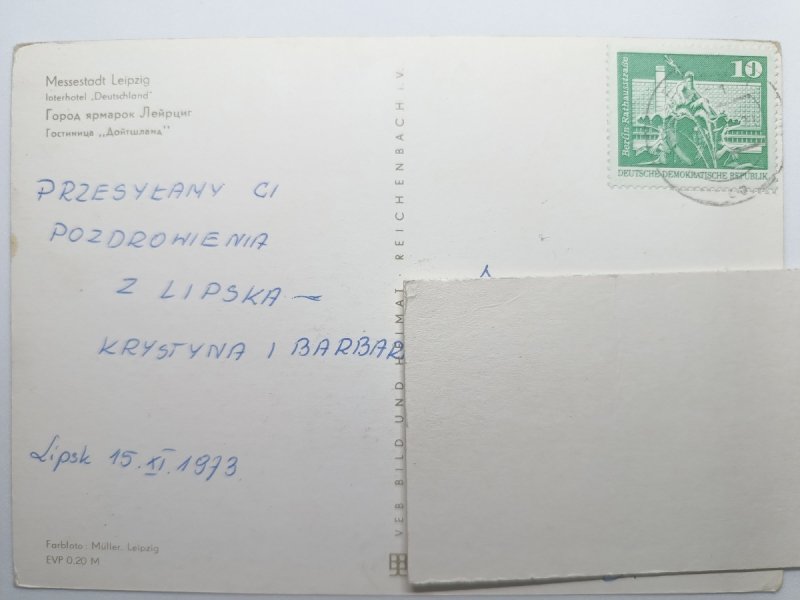 Messestadt Leipzig
Interhotel „Deutschland“
Город ярмарок Лейпциг
Гостиница „Дойтшланд“
PRZESYŁAMY CI
POZDROWIENIA
Z LIPSKA –
KRYSTYNA I BARBAR
Lipsk 15.XI.1973
Farbfoto: Müller, Leipzig
EVP 0,20 M
VEB BILD UND HEIMAT · REICHENBACH i. V.
10
Berlin-Rathausstraße
DEUTSCHE DEMOKRATISCHE REPUBLIK